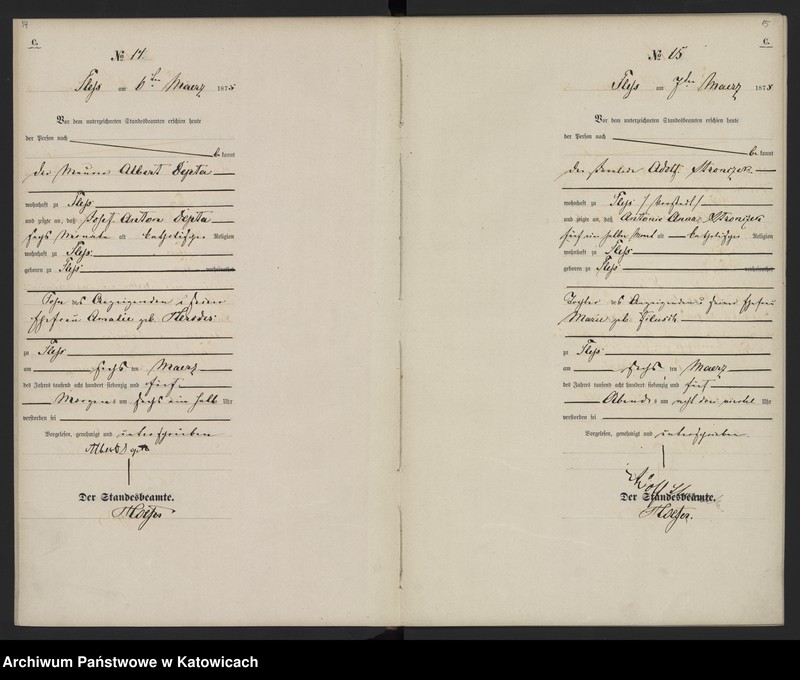 14
C.
№ 14.
Pless am 6ten Maerz 1875
Vor dem unterzeichneten Standesbeamten erschien heute
der Person nach
bekannt
der Maurer Albert Depta
wohnhaft zu Pless
und zeigte an, daß Josef Anton Depta
sechs Monate alt katholischer Religion
wohnhaft zu Pless
geboren zu Pless verheirathet
Sohn des Anzeigenden u seiner
Ehefrau Amalie geb Herodes
zu Pless
am sechs ten Maerz
des Jahres tausend acht hundert siebenzig und fünf
Morgens um sechs ein halb Uhr
verstorben sei
Vorgelesen, genehmigt und unterschrieben
Albert Depta
Der Standesbeamte.
15
C.
№ 15
Pless am 7ten Maerz 1875
Vor dem unterzeichneten Standesbeamten erschien heute
der Person nach
bekannt
der Adolf
wohnhaft zu Pless
und zeigte an, daß Antonie Anna
fünf ein halb Monat alt katholischer Religion
wohnhaft zu Pless
geboren zu Pless verheirathet
Tochter des Anzeigenden u seiner Ehefrau
Marie geb
zu Pless
am sechs ten Maerz
des Jahres tausend acht hundert siebenzig und fünf
Abends um acht drei viertel Uhr
verstorben sei
Vorgelesen, genehmigt und unterschrieben
Der Standesbeamte.
Archiwum Państwowe w Katowicach